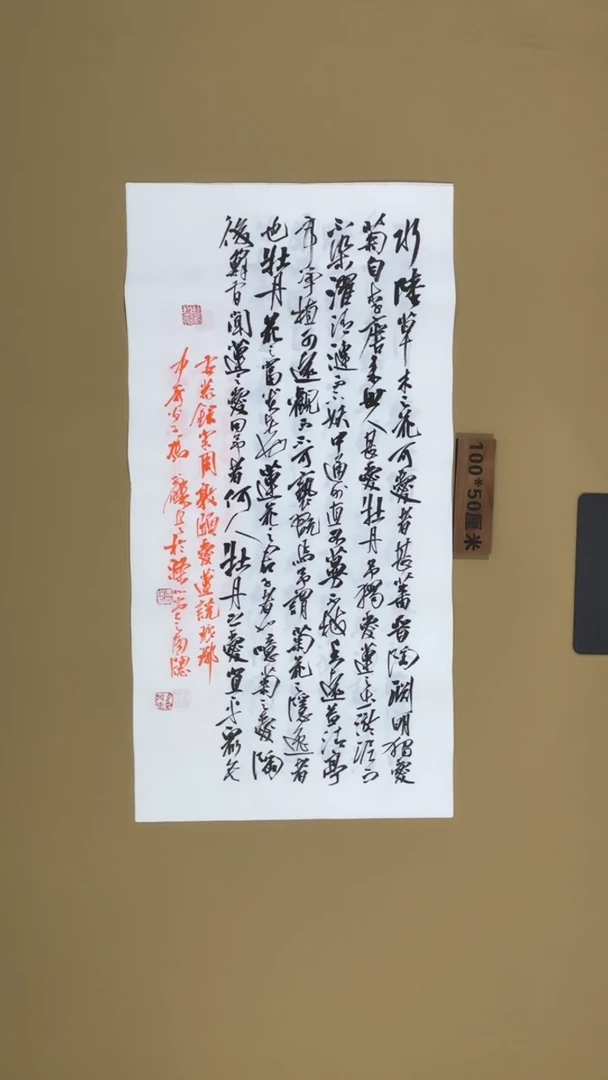 水陸草木之花可愛者甚蕃晉陶淵明獨愛
菊自李唐來世人甚愛牡丹予獨愛蓮之出淤泥而
不染濯清漣而不妖中通外直不蔓不枝香遠益清亭
亭淨植可遠觀而不可褻玩焉予謂菊花之隱逸者
也牡丹花之富貴者也蓮花之君子者也噫菊之愛陶
後鮮有聞蓮之愛同予者何人牡丹之愛宜乎眾矣
宋周敦頤愛蓮說
於 之南窗
100*50厘米